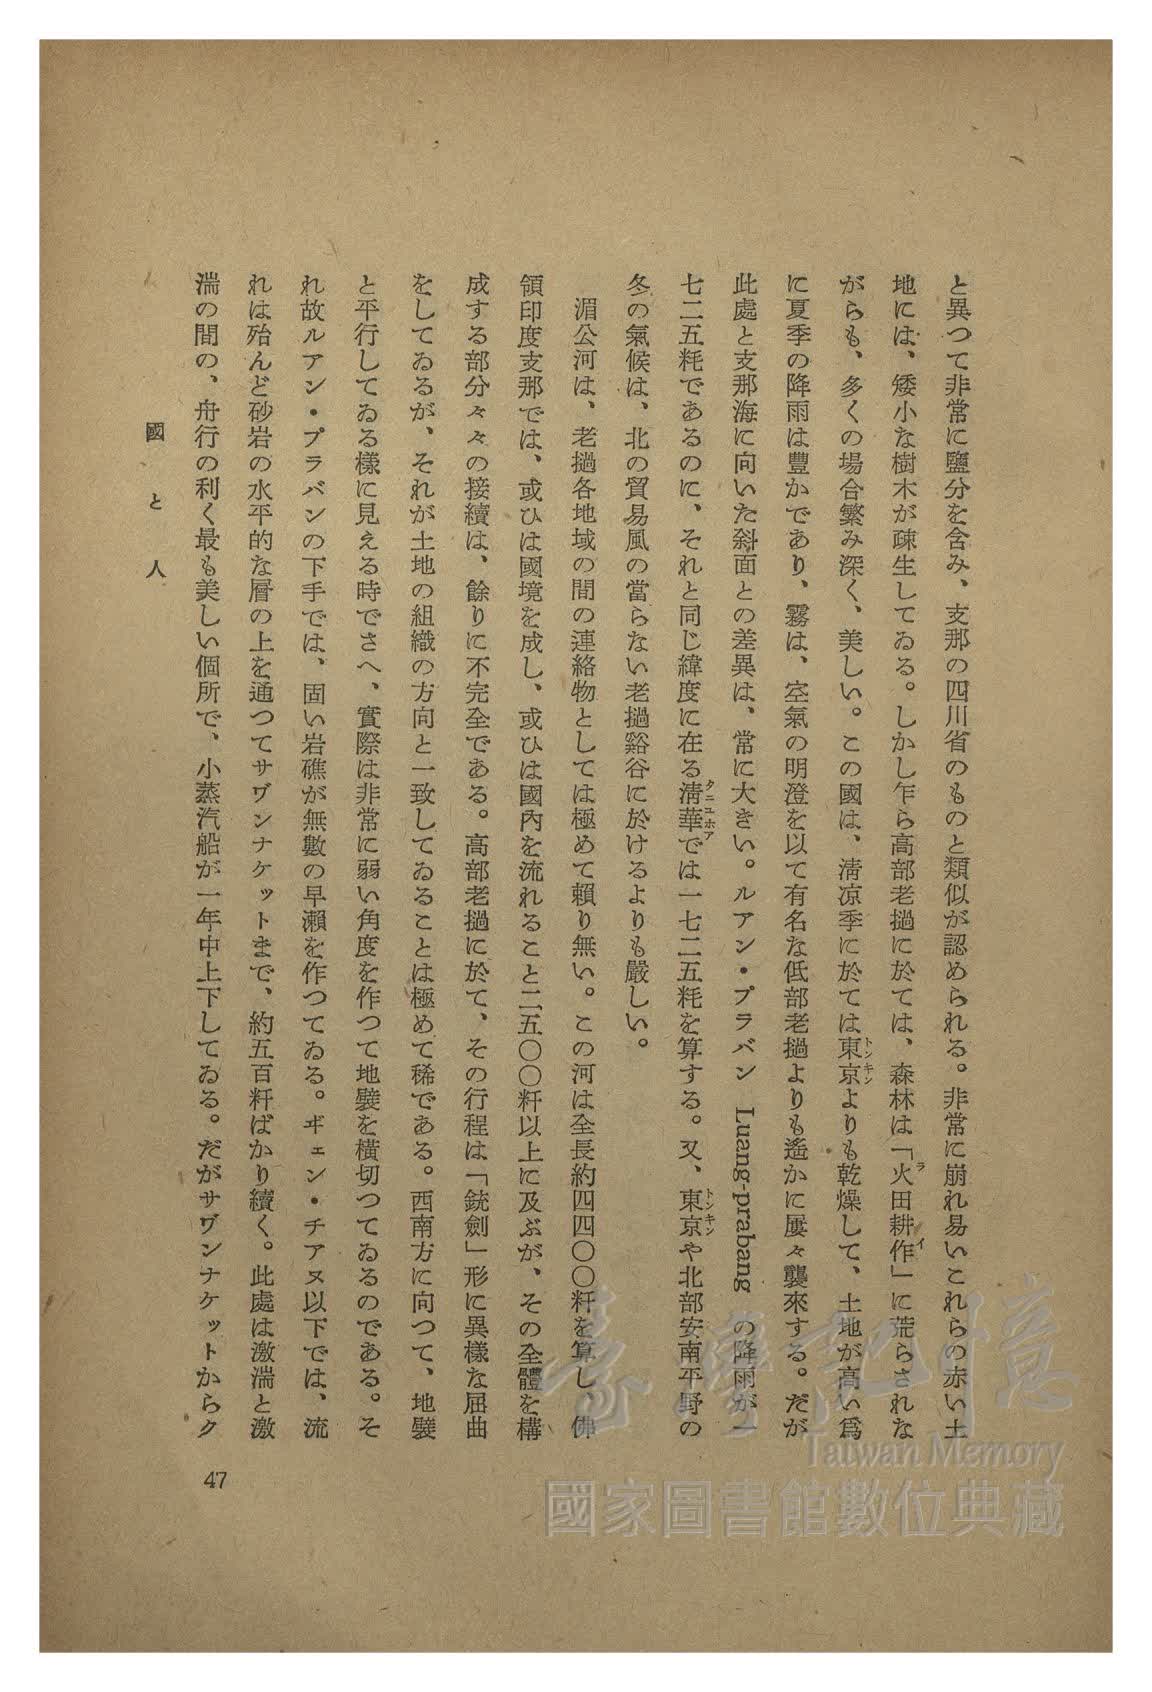 と異つて非常に鹽分を含み、支那の四川省のものと類似が認められる。非常に崩れ易いこれらの赤い土
地には、矮小な樹木が疎生してゐる。しかし乍ら高部老撾に於ては、森林は「火田耕作」に荒らされな
ライ
がらも、多くの場合繁み深く、美しい。この國は、淸凉季に於ては東京よりも乾燥して、土地が高い爲
トンキン
に夏季の降雨は豐かであり、霧は、空氣の明澄を以て有名な低部老撾よりも遙かに屢々襲來する。だが
此處と支那海に向いた斜面との差異は、常に大きい。ルアン・プラバン Luang-prabang の降雨が一
七二五粍であるのに、それと同じ緯度に在る淸華では一七二五粍を算する。又、東京や北部安南平野の
タニユホア
トンキン
冬の氣候は、北の貿易風の當らない老撾谿谷に於けるよりも嚴しい。
湄公河は、老撾各地域の間の連絡物としては極めて賴り無い。この河は全長約四四〇〇粁を算し、佛
領印度支那では、或ひは國境を成し、或ひは國內を流れること二五〇〇粁以上に及ぶが、その全體を構
成する部分々々の接續は、餘りに不完全である。高部老撾に於て、その行程は「銃劍」形に異樣な屈曲
をしてゐるが、それが土地の組織の方向と一致してゐることは極めて稀である。西南方に向つて、地襞
と平行してゐる樣に見える時でさへ、實際は非常に弱い角度を作つて地襞を橫切つてゐるのである。そ
れ故ルアン・プラバンの下手では、固い岩礁が無數の早瀨を作つてゐる。ヸェン・チアヌ以下では、流
れは殆んど砂岩の水平的な層の上を通つてサヴンナケットまで、約五百粁ばかり續く。此處は激湍と激
湍の間の、舟行の利く最も美しい個所で、小蒸汽船が一年中上下してゐる。だがサヴンナケットからク
國と人
47
臺灣記憶
Taiwan Memory
國家圖書館數位典藏